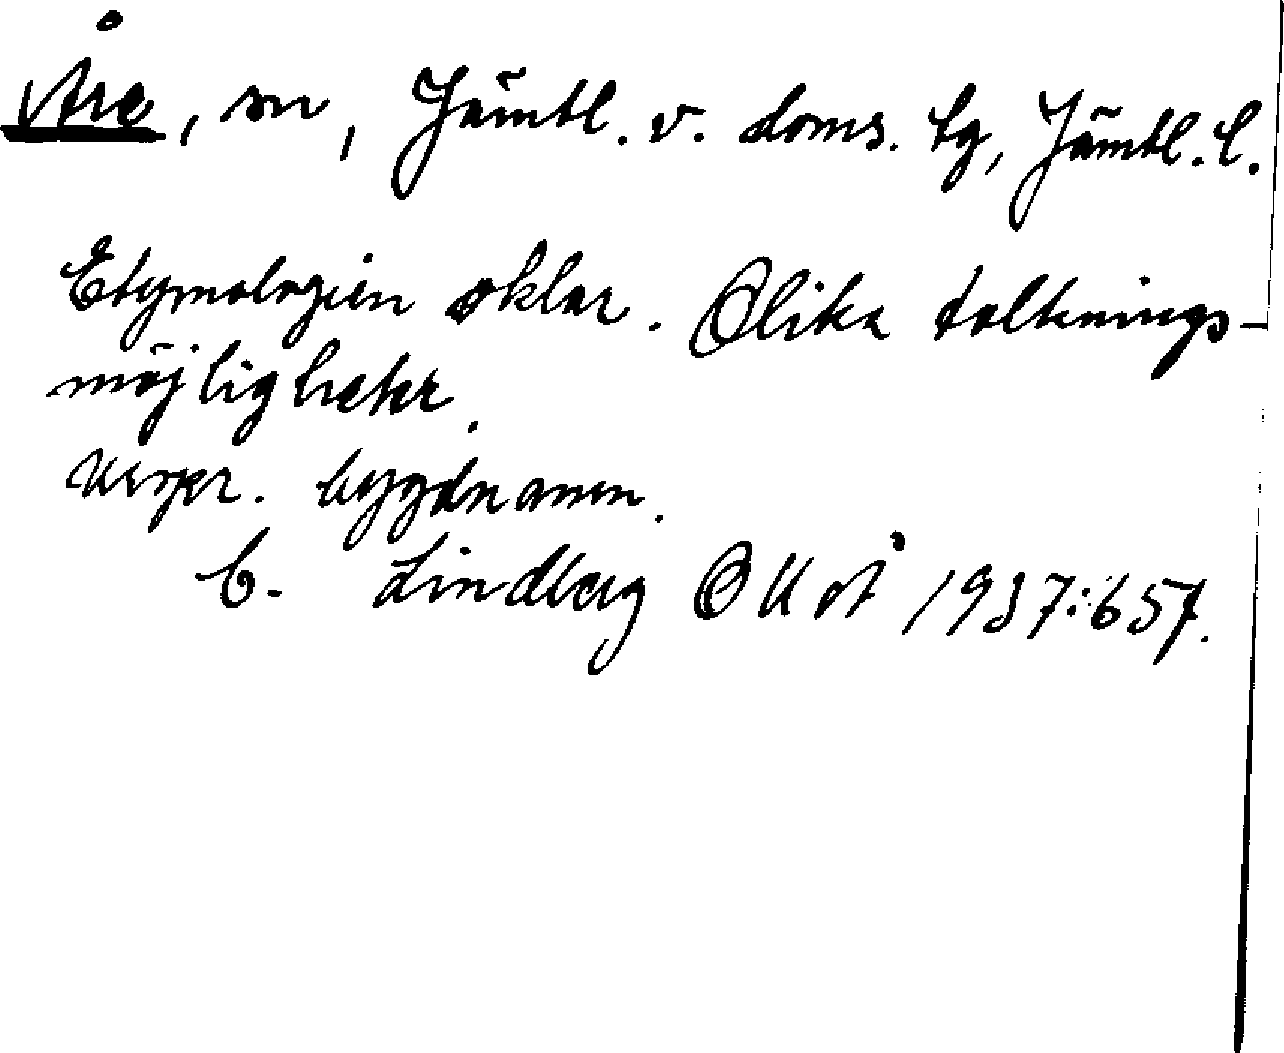 Åre, sn, Jämtl. v. doms. tg, Jämtl. l.
Etymologien oklar. Olika tolknings-
möjligheter.
Urspr. bygdnamn.
C. Lindberg OUÅ 1937:657.